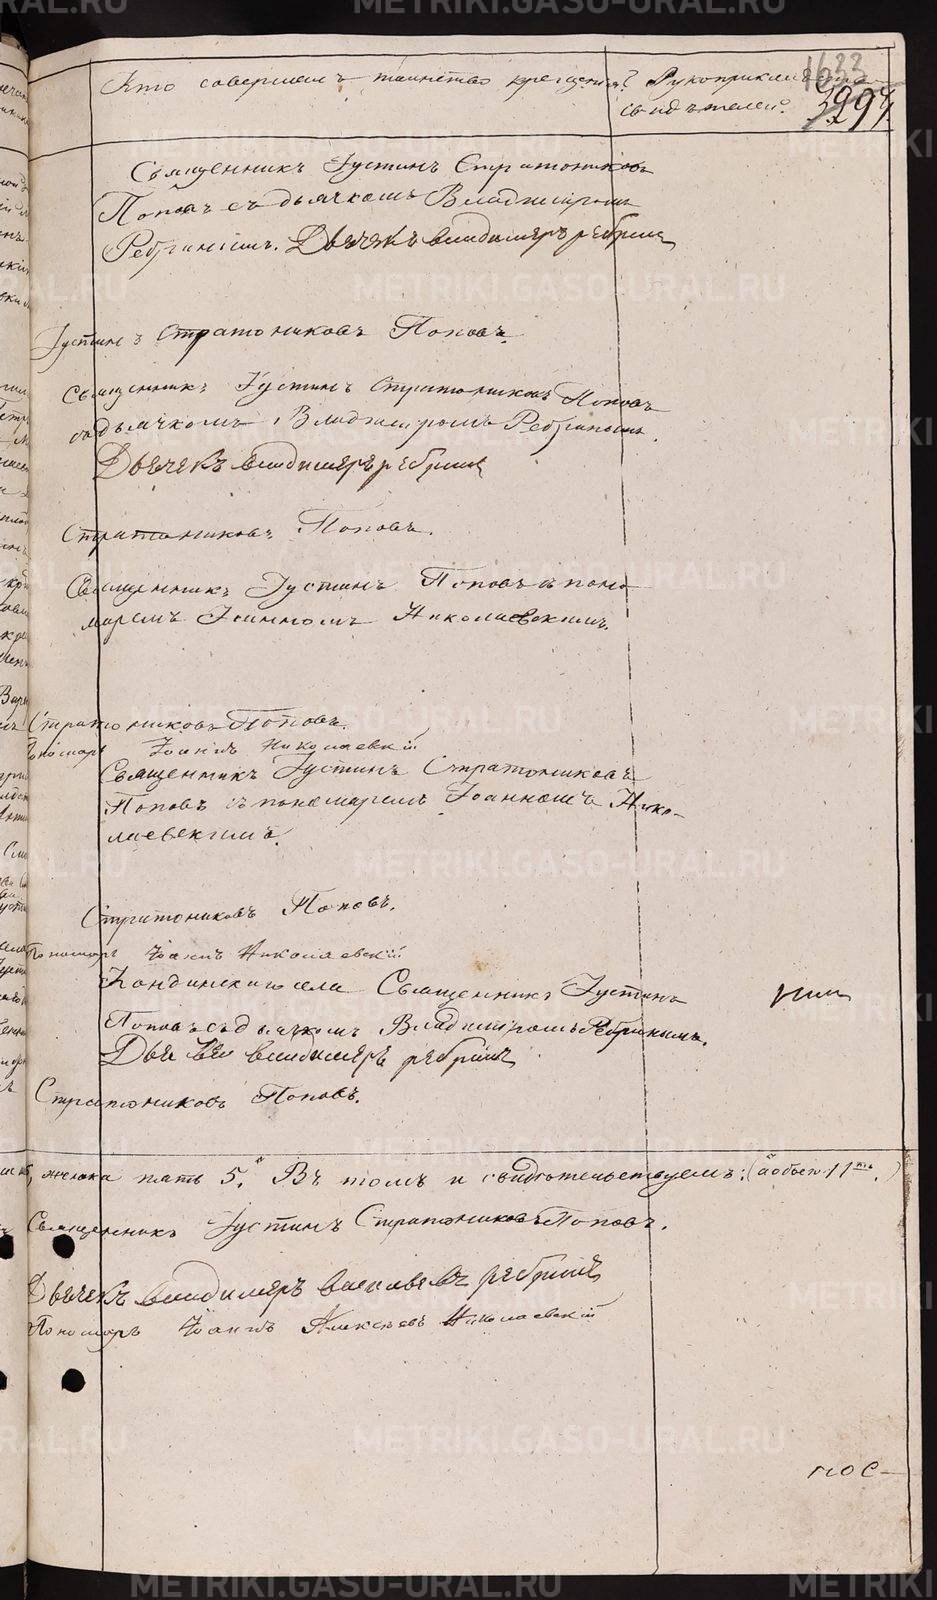 Кто совершалъ таинство крещенія? Рукоприкладство
свидѣтелей?
1633
Священникъ Іустинъ Стратониковъ
Поповъ съ дьячкомъ Владиміромъ
Ребринымъ. Дьячекъ владимеръ ребринъ
Іустинъ Стратониковъ Поповъ.
Священникъ Іустинъ Стратониковъ Поповъ
съ дьячкомъ Владиміромъ Ребринымъ.
Дьячекъ владимеръ ребринъ
Стратониковъ Поповъ.
Священникъ Іустинъ Поповъ съ поно
маремъ Іоанномъ Николаевскимъ.
Стратониковъ Поповъ.
Пономарь Іоаннъ Николаевскій
Священникъ Іустинъ Стратониковъ
Поповъ съ пономаремъ Іоанномъ Нико-
лаевскимъ.
Стратониковъ Поповъ.
Пономарь Іоаннъ Николаевскій
села Священникъ Іустинъ
Поповъ съ дьячкомъ Владиміромъ Ребринымъ.
владимеръ ребринъ
Стратониковъ Поповъ.
женска пять 5. Въ томъ и свидѣтельствуемъ: (а обоего 11ть.)
Священникъ Іустинъ Стратониковъ Поповъ.
Дьячекъ владимеръ ребринъ
Пономарь Іоаннъ Алексѣевъ Николаевскій
пос-
METRIKI.GASO-URAL.RU